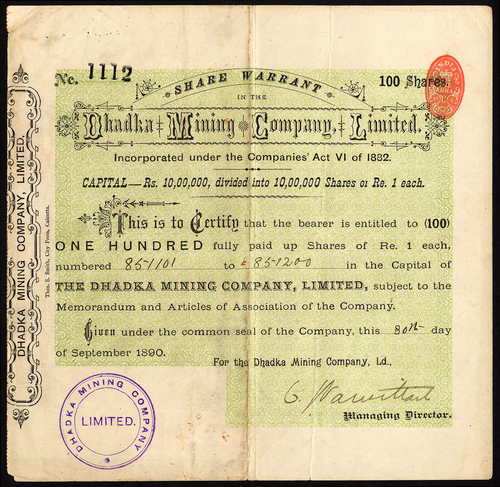 No. 1112
100 Shares.
SHARE WARRANT
IN THE
Dhadka Mining Company, Limited.
Incorporated under the Companies' Act VI of 1882.
CAPITAL — Rs. 10,00,000, divided into 10,00,000 Shares of Re. 1 each.
This is to Certify that the bearer is entitled to (100)
ONE HUNDRED fully paid up Shares of Re. 1 each,
numbered 851101 to 851200 in the Capital of
THE DHADKA MINING COMPANY, LIMITED, subject to the
Memorandum and Articles of Association of the Company.
Given under the common seal of the Company, this 30th day
of September 1890.
For the Dhadka Mining Company, Ld.,
Managing Director.
DHADKA MINING COMPANY
LIMITED.
DHADKA MINING COMPANY, LIMITED.
Thos. S. Smith, City Press, Calcutta.
INDIA